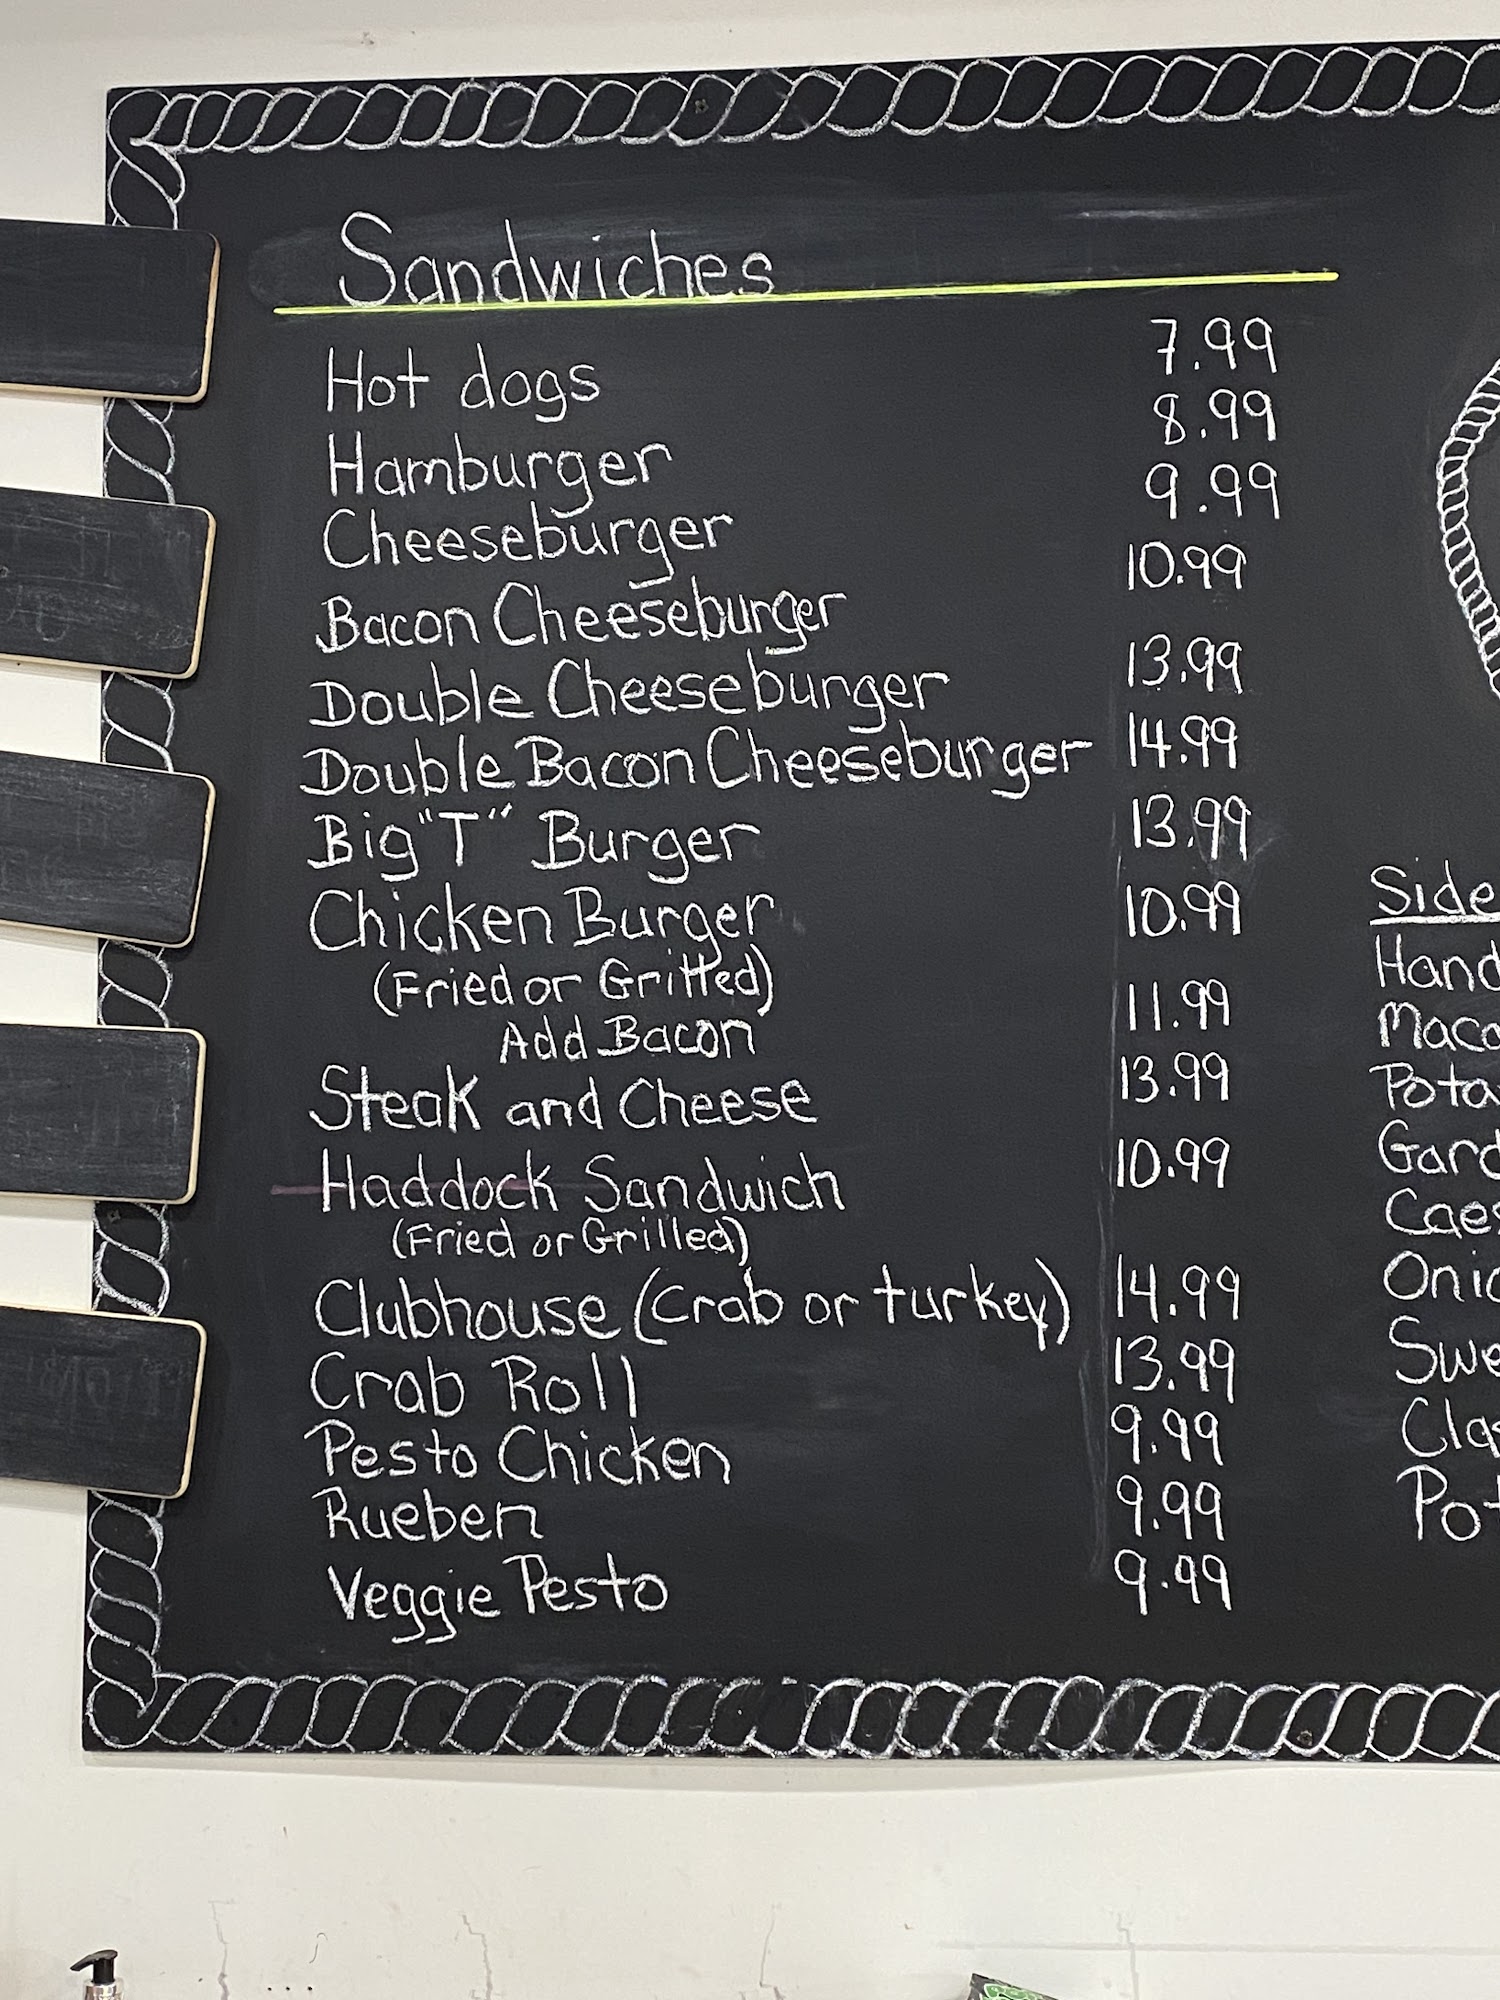 Sandwiches
Hot dogs 7.99
Hamburger 8.99
Cheeseburger 9.99
Bacon Cheeseburger 10.99
Double Cheeseburger 13.99
Double Bacon Cheeseburger 14.99
Big "T" Burger 13.99
Chicken Burger 10.99
(Fried or Gritted)
Add Bacon 11.99
Steak and Cheese 13.99
Haddock Sandwich 10.99
(Fried or Grilled)
Clubhouse (Crab or turkey) 14.99
Crab Roll 13.99
Pesto Chicken 9.99
Rueben 9.99
Veggie Pesto 9.99
Side
Hand
Maca
Pota
Gard
Caes
Onio
Swe
Clas
Pot